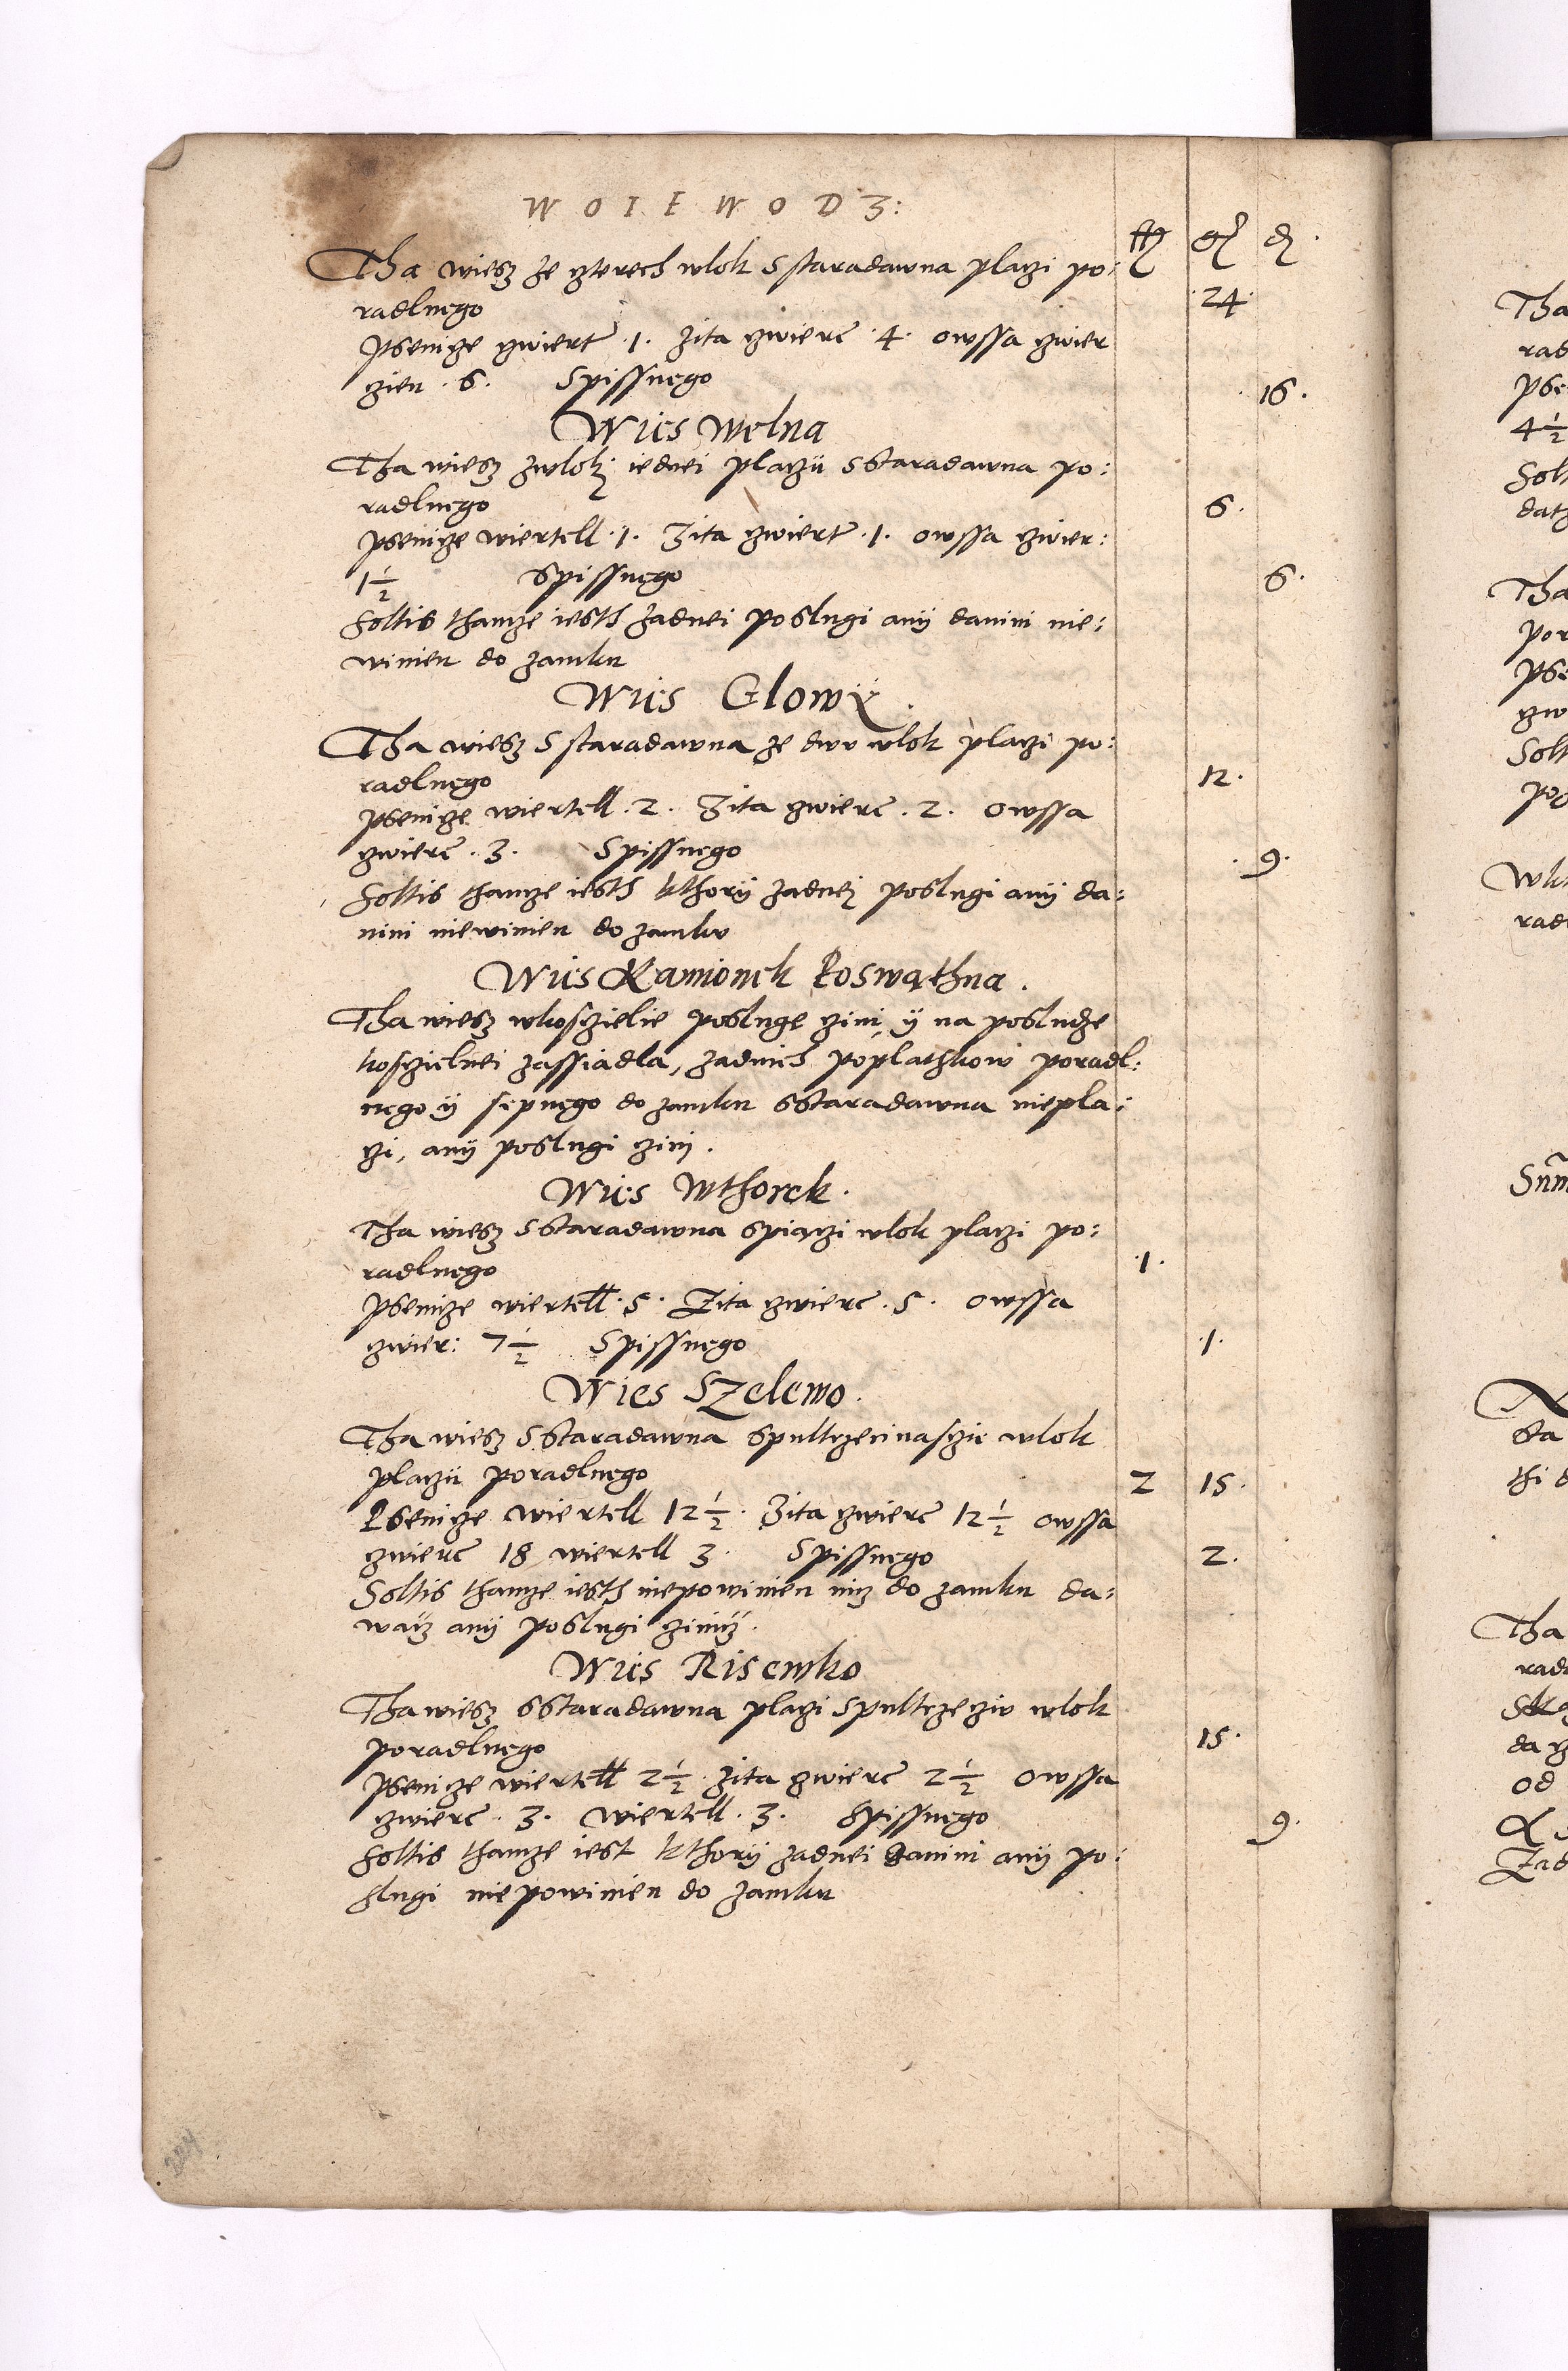 W O I E W O D Z:
f g d
Tha wiesz ze czterech wlok s staradawna placzi po:
radlnego 24
Psenicze cwiert .1. zita cwierc .4. owssa cwier
czien .6. Spissnego 16.
Wies Welna
Tha wiesz zwlokj iednei placzii sstaradawna po:
radlnego 6.
psenicze wiertell .1. Zita cwiert .1. owssa cwier:
1 1/2 Spissnego 6.
Soltis thamze iesth zadnei poslugi anij danini nie:
winien do zamku
Wies Glowÿ
Tha wiesz s staradawna ze dwu wlok placzi po:
radlnego 12.
psenicze wiertell .2. Zita cwierc .2. owssa
cwierc .3. Spissnego 9.
Soltis thamze iesth kthorij zadnej poslugi anij da:
nini niewinien do zamku
Wies Kamionek Roswathna.
Tha wiesz wkosczielie poslugę czini ij na posludze
kosczielnei zassiadla, zadnich poplathkow poradl:
nego ij sepnego do zamku sstaradawna niepla:
czi, anij poslugi czinj.
Wies Wthorek.
Tha wiesz sstaradawna spiączi wlok placzi po:
radlnego 1.
psenicze wiertell .5. Zita cwierc .5. owssa
cwier: 7 1/2 Spissnego 1.
Wies Szelewo.
Tha wiesz sstaradawna spultrzecinasczie wlok
placzii poradlnego 2 15.
Psenicze wiertell 12 1/2. Zita cwierc 12 1/2 owssa
cwierc 18 wiertell 3. Spissnego 2.
Soltis thamze iesth niepowinien nicz do zamku da:
wacz anij poslugi czinicz.
Wies Risewko
Tha wiesz sstaradawna placzi spultrzecziv wlok
poradlnego 15.
psenicze wiertell 2 1/2. zita cwierc 2 1/2 owssa
cwierc .3. wiertell .3. Spissnego 9.
Soltis thamze iest kthorij zadnei danini anij po:
slugi niepowinien do zamku